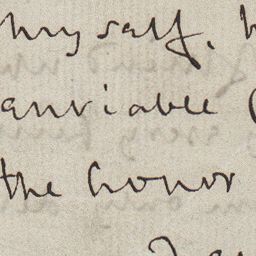 myself.
enviable (
the honor